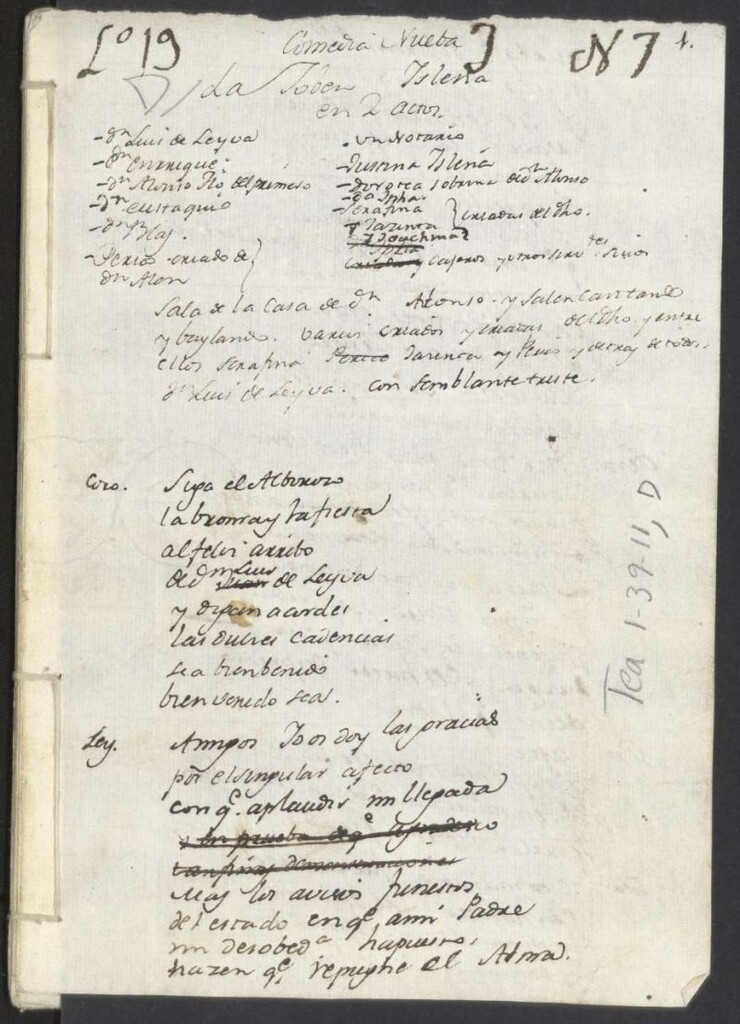 Lo 19
Comedia Nueba
N 7
1.
La Joben Isleña
en 2 actos.
-Dn Luis de Leyva
-Dn enrrique.
-Dn Alonso tio del primero
-Dn eustaquio
-Dn Blas.
-Perico criado de
Dn Alon
. un Notario
-Justina Isleña
-Dorotea sobrina de Dn Alonso
-Serafina
Jazinta
criadas del dho.
y cajeros y otros
Sala de la Casa de Dn Alonso. y salen Cantando
y baylando. varios criados y criadas del dho. y entre
ellos Serafina Perico Jazinta y Perico y detras de todos,
Dn Luis de Leyva. con semblante triste.
Coro. Siga el Alborozo
la broma y la fiesta
al feliz arribo
de Dn Luis de Leyva
y digan acordes
las dulces cadencias
sea bienbenido
bien venido sea.
Ley. Amigos Yo os doy las gracias
por el singular afecto
con qe. aplaudis mi llegada
en prueba de qe
tan finas demonstraciones
Mas los avisos funestos
del estado en qe a mi Padre
mi desobeda ha puesto,
hazen qe. repugne el Alma.
Tea 1-39-11, D